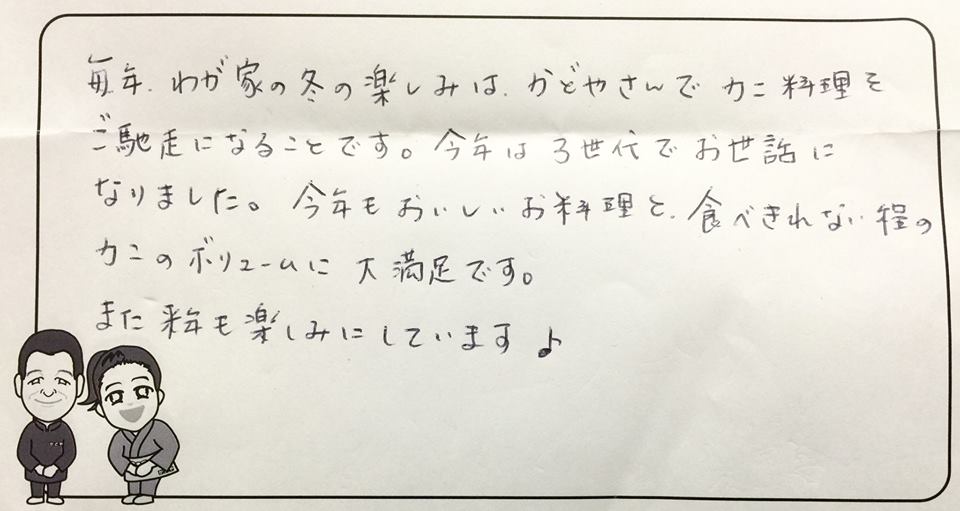 毎年、わが家の冬の楽しみは、かどやさんでカニ料理を
ご馳走になることです。今年は3世代でお世話に
なりました。今年もおいしいお料理と、食べきれない程の
カニのボリュームに大満足です。
また来年も楽しみにしています♪